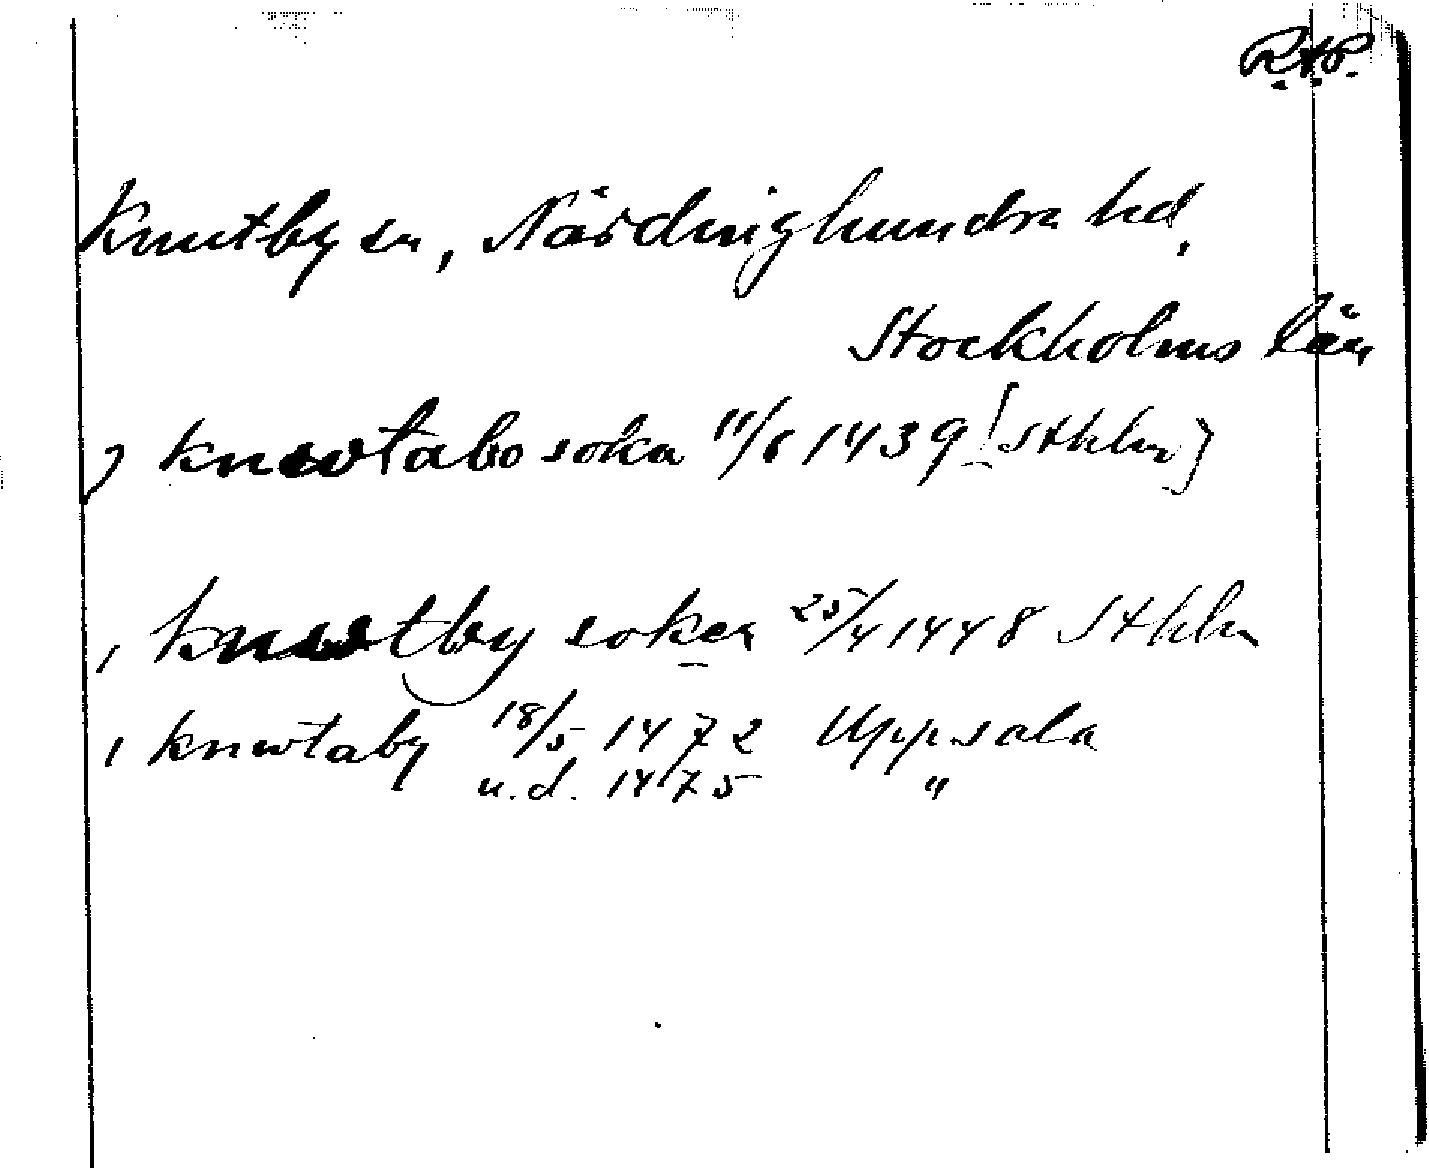 R.A.P.
Knutby sn, Närdinghundra hd,
Stockholms län
j knwtabo soka 11/6 1439 [Sthlm]
i knwtby soken 25/4 1448 Sthlm
i knwtaby 18/5 1472 Uppsala
u.d. 1475 "